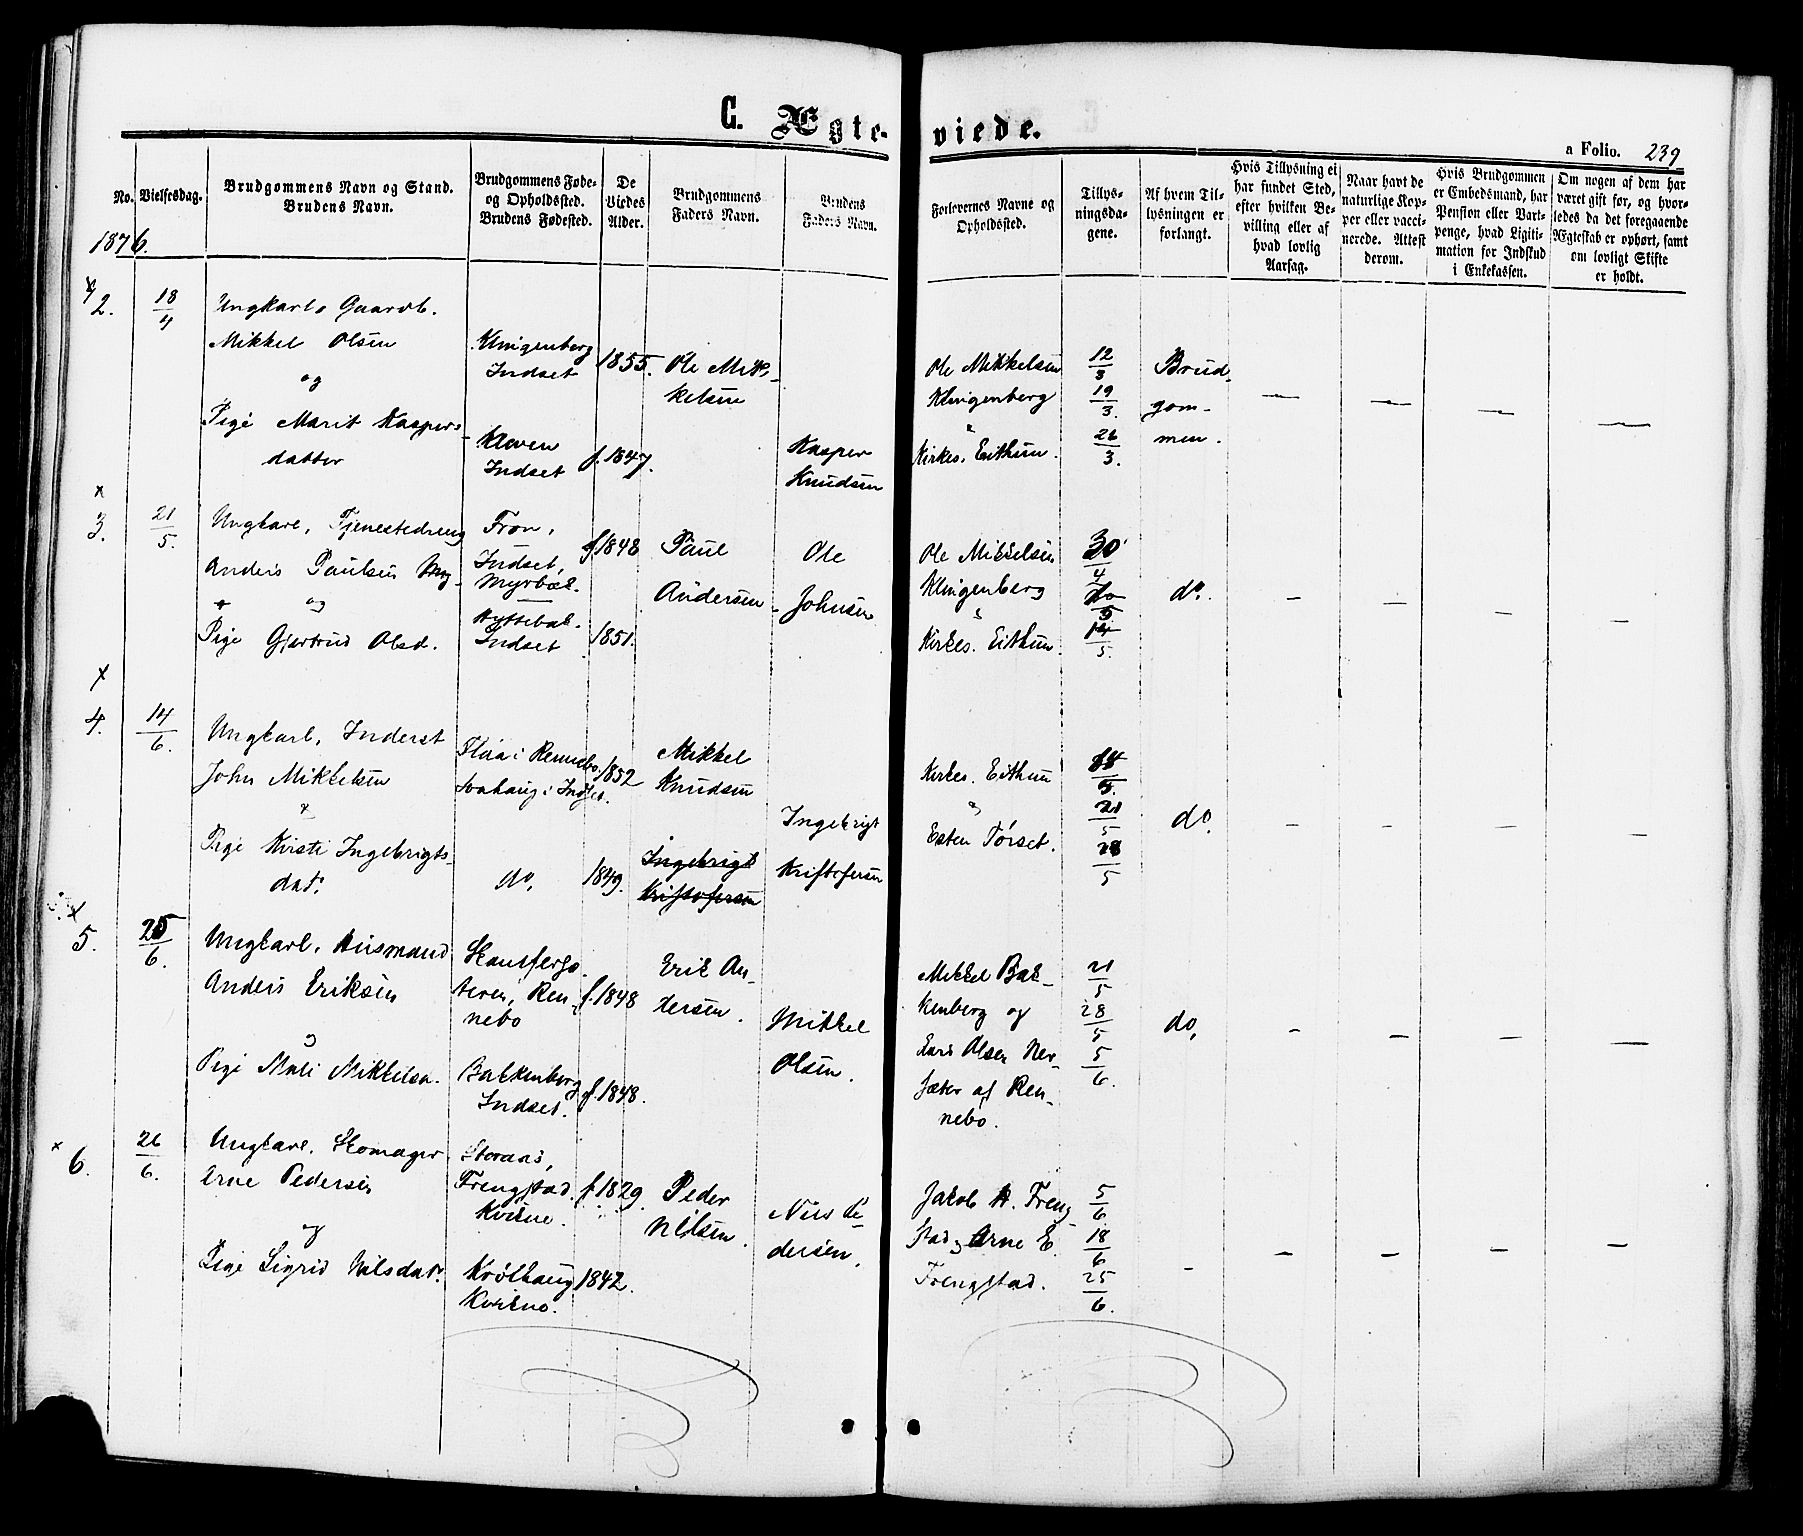 C. Ægteviede.
a Folio. 239
No.
Vielsesdag.
Brudgommens Navn og Stand.
Brudens Navn.
Brudgommens Føde-
og Opholdssted.
Brudens Fødested.
De
Viedes
Alder.
Brudgommens
Faders Navn.
Brudens
Faders Navn.
Forlovernes Navne og
Opholdssted.
Tillys-
ningsda-
gene.
Af hvem Til-
lysningen er
forlangt.
Hvis Tillysning ei
har fundet Sted,
efter hvilken Be-
villing eller af
hvad lovlig
Aarsag.
Naar havt de
naturlige Kop-
per eller vacci-
nerede. Attest
derom.
Hvis Brudgommen
er Embedsmand, har
Pension eller Vart-
penge, hvad Ligiti-
mation for Indskud
i Enkekassen.
Om nogen af dem har
været gift før, og hvor-
ledes da det foregaaende
Ægteskab er ophørt, samt
om lovligt Skifte
er holdt.
1876.
2.
18/4
Ungkarl, Gaardb.
Mikkel Olsen
og
Pige Marit Kaspers-
datter
Klingenberg
Indset
Indset
1855.
f. 1847.
Ole Mik-
kelsen
Kasper
Knudsen
Ole Mikkelsen
Klingenberg
Kirkes. Eithun.
12/3
19/3.
26/3.
Brud-
gom-
men.
3.
21/5.
Ungkarl, Tjenestedreng
Anders Paulsen
og
Pige Gjertrud Olsd.
Indset,
Myrbæk.
Indset
f. 1848
1851.
Paul
Andersen
Ole
Johnsen
Ole Mikkelsen
Klingenberg
Kirkes. Eithun
30/4
14/5.
do.
4.
14/6.
Ungkarl, Inderst
John Mikkelsen
Pige Kirsti Ingebrigts-
dat.
Flaa i Rennebo.
do.
1852
1849.
Mikkel
Knudsen
Ingebrigt
Kristofersen
Ingebrigt
Kristofersen
Kirkes. Eithun
Esten Tørset.
14/5.
21/5
28/5
do.
5.
25/6.
Ungkarl, Husmand
Anders Eriksen
Pige Mali Mikkelsd.
Ren-
nebo
Bakkenberg
Indset.
f. 1848
f. 1848.
Erik An-
dersen.
Mikkel
Olsen.
Mikkel Bak-
kenberg og
Lars Olsen Ner-
sæter af Ren-
nebo.
21/5
28/5
5/6.
do.
6.
26/6.
Ungkarl, Skomager
Arne Pedersen
og
Pige Sigrid Nilsdat.
Storaas,
Frengstad
Kvikne.
Krølhaug
Kvikne.
f. 1829.
1842.
Peder
Nilsen.
Nils Pe-
dersen.
Jakob H. Freng-
stad, Arne E.
Frengstad.
5/6
18/6
25/6.